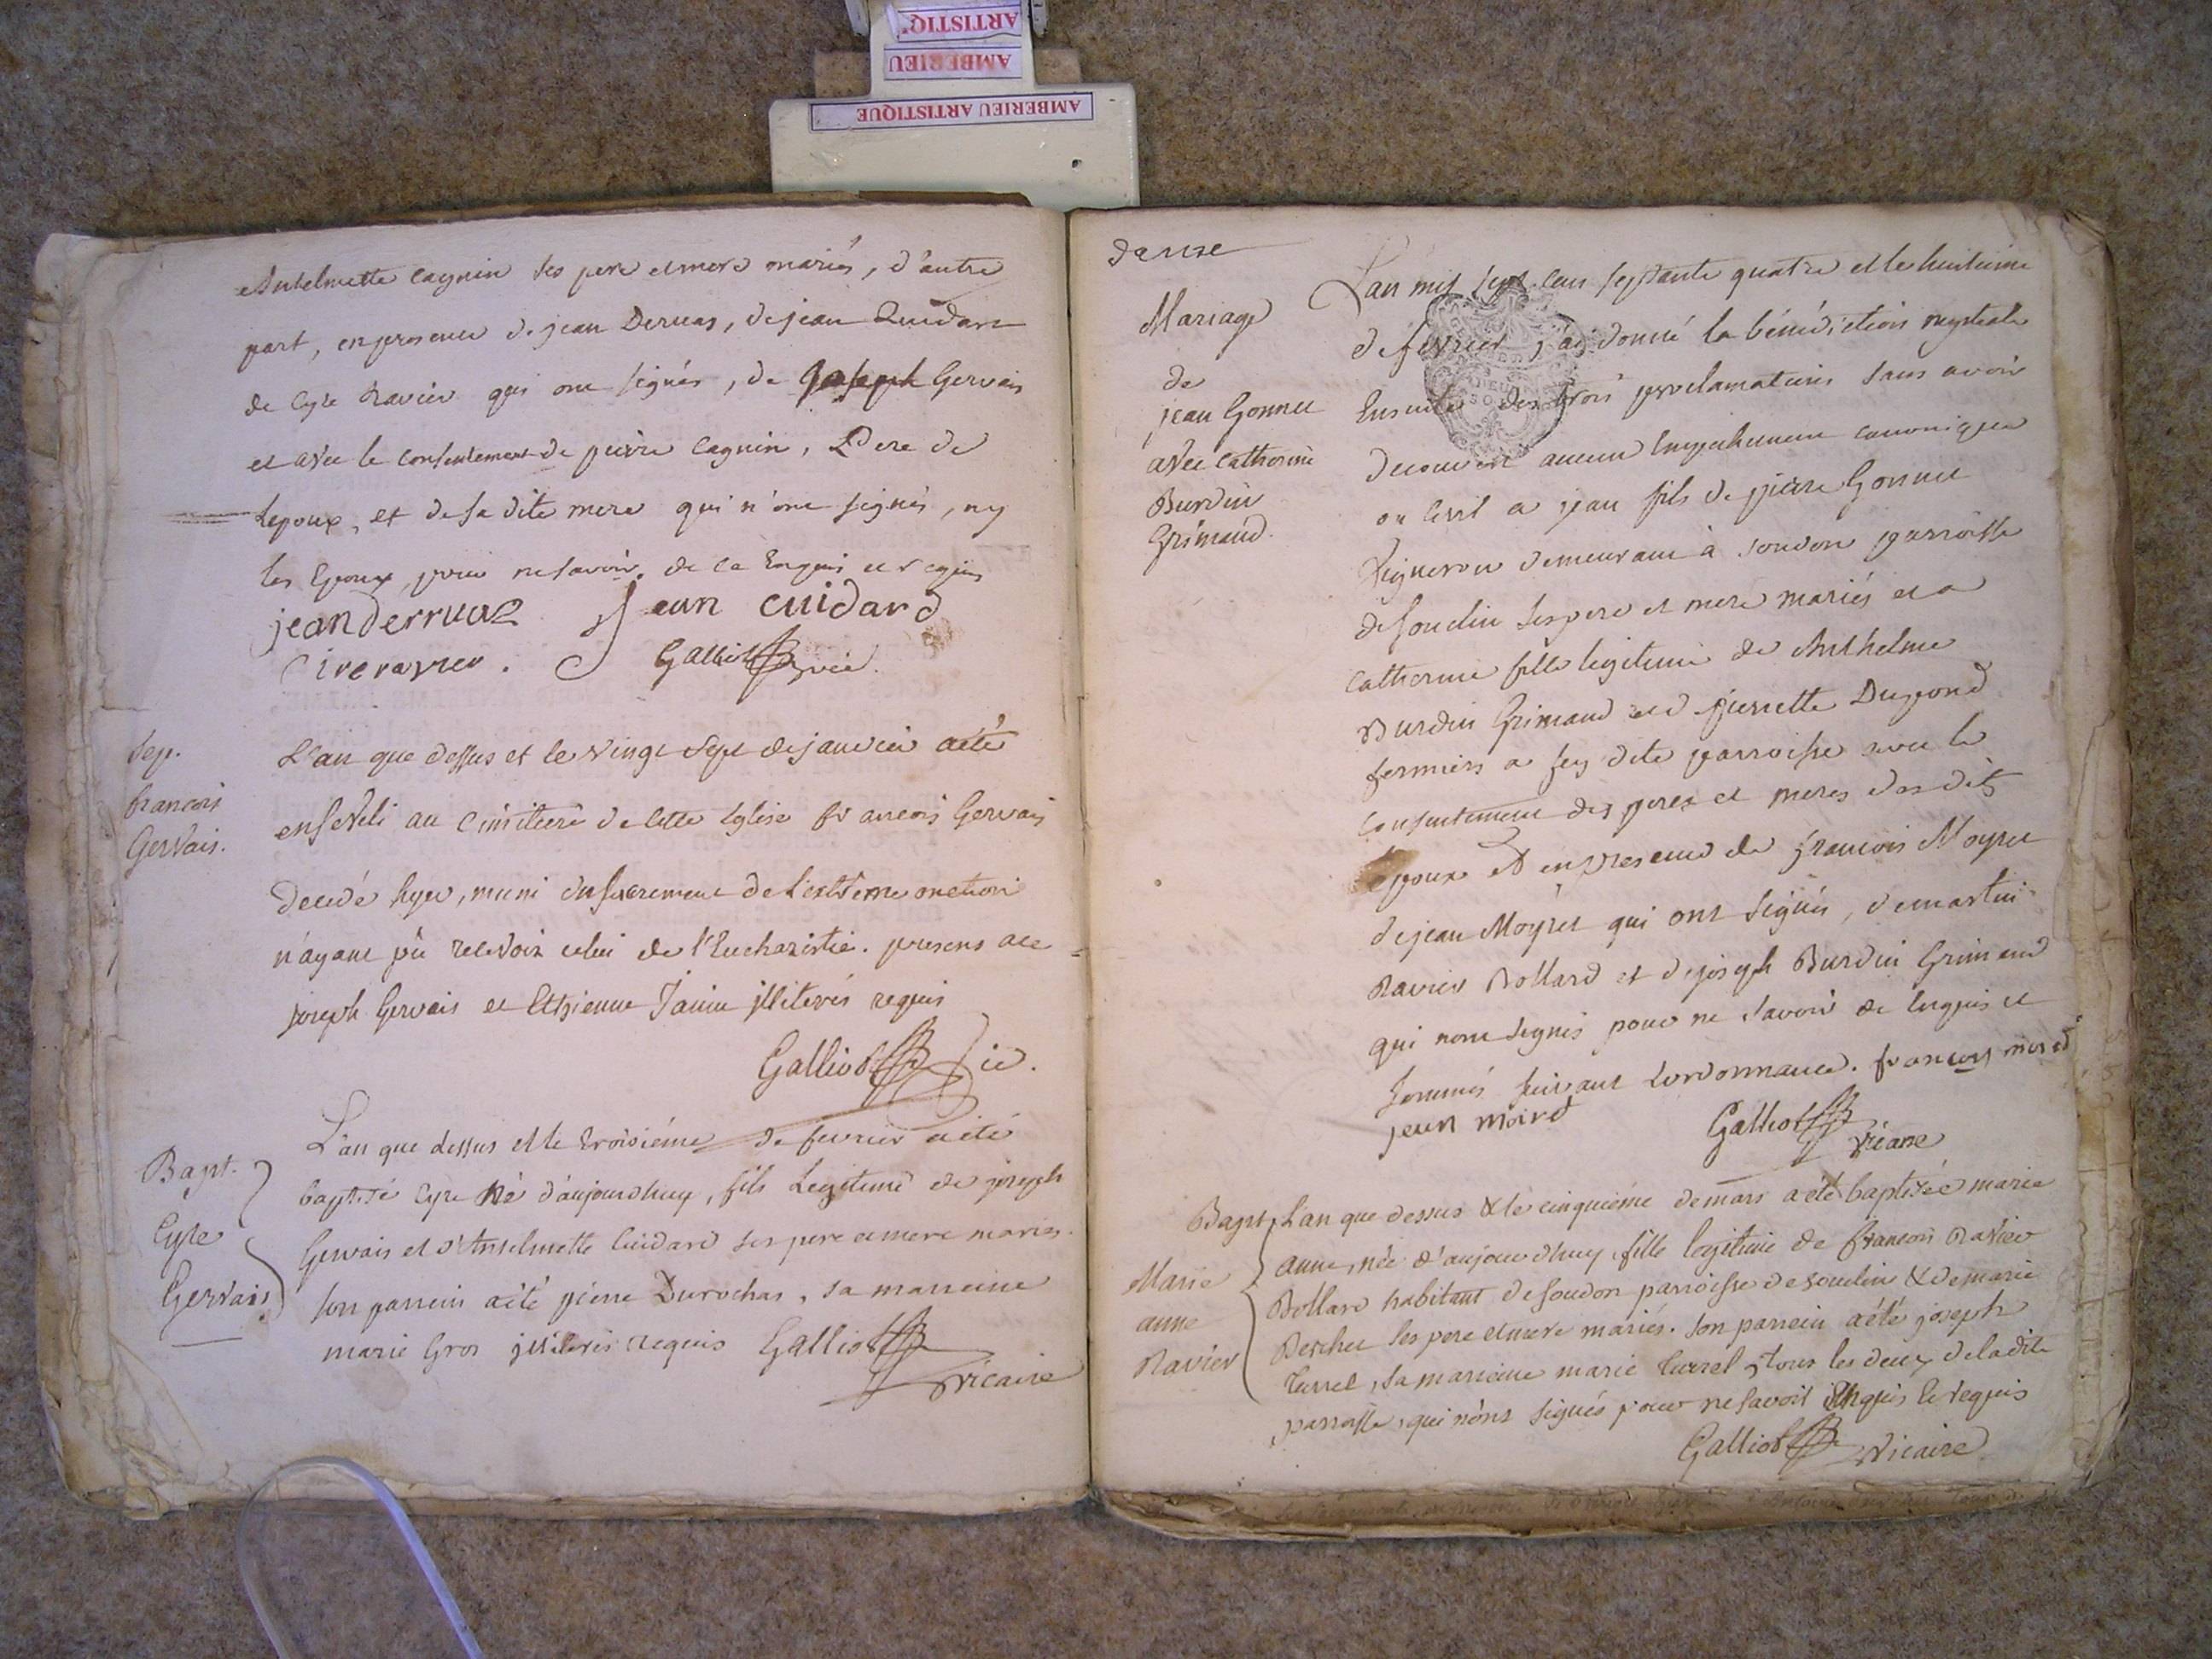 ARTISTIQ'
AMBERIEU
AMBERIEU ARTISTIQUE
Antelmette Cagnin ses pere et mere mariés, d'autre
part, en presence de jean Derruas, de jean Quidard
de Cyre Ravier qui ont signés, de Joseph Gervais
et avec le consentement de pierre Cagnin, Pere de
lepoux, et de sa dite mere qui n'ont signés, ny
les Epoux, pour ne savoir, de ce Enquis et requis
jean derruaz Jean cuidard
Cire ravier. Galliot vic.
Sep.
francois
Gervais.
L'an que dessus et le vingt sept de janvier a été
enseveli au Cimitiere de cette Eglise francois Gervais
decedé hyer, muni du sacrement de l'extrême onction
n'ayant pû recevoir celui de l'Eucharistie. presens a ce
joseph Gervais et Ethienne Janin jlliterés requis
Galliot vic.
Bapt.
Cyre
Gervais
L'an que dessus et le troisiéme de fevrier a été
baptisé Cyre né d'aujourdhuy, fils Legitime de joseph
Gervais et d'Anselmette Cuidard ses pere et mere mariés.
son parrein a été pierre Durochas, sa marreine
marie Gros jlliterés requis Galliot
vicaire
dense
Mariage
de
jean Gonnet
avec Catherine
Burdin
Grimaud.
L'an mil sept cens septante quatre et le huitieme
de fevrier j'ai donné la bénédiction nuptiale
Ensuite des trois proclamations sans avoir
decouvert aucun Empechement canonique
ou Civil a jean fils de pierre Gonnet
Vigneron demeurant à soudon parroisse
de souclin ses pere et mere mariés et a
Catherine fille legitime de Anthelme
Burdin Grimaud et d pierrette Dupond
fermiers a fey dite parroisse avec le
consentement des peres et meres desdits
Epoux et en presence de francois Moyret
de jean Moyret qui ont signés, de martin
Ravier Bollard et de joseph Burdin Grimaud
qui n'ont signés pour ne savoir de Enquis et
sommés suivant Lordonnance. francois moiret
jean moiret Galliot
vicaire
Bapt.
Marie
anne
Ravier
L'an que dessus & le cinquiéme de mars a été baptisée marie
anne, née d'aujourdhuy, fille legitime de francois Ravier
Bollard habitant de soudon parroisse de souclin & de marie
Berchet ses pere et mere mariés. son parrein a été joseph
Turrel, sa marreine marie turrel, tous les deux de la dite
parroisse, qui n'ont signés pour ne savoir Enquis et requis
Galliot vicaire